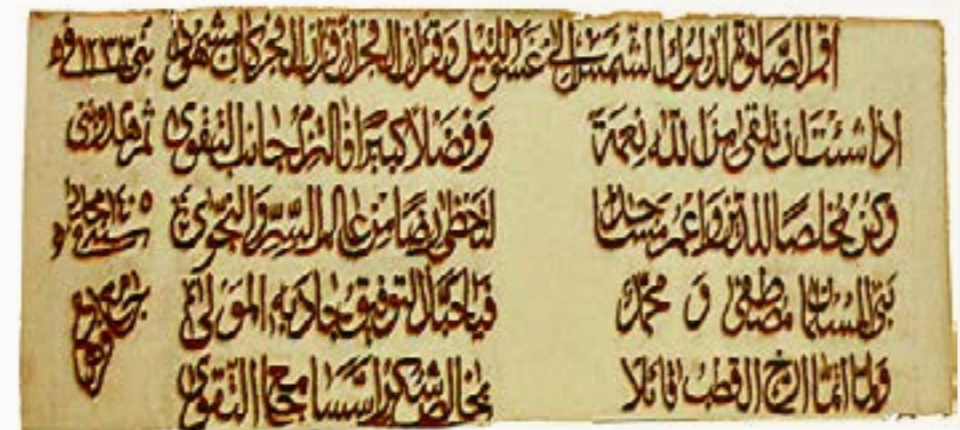 اقم الصلوة لدلوك الشمس الى غسق الليل وقران الفجر ان قران الفجر كان مشهودا بني ١٢٣٣
اذا شئت ان تلقى من الله نعمة وفضلا كبيرا فالتزم جانب التقوى ثم هد وبني
وكن مخلصا للدين واعمر مساجدا لتحظى رضا من عالم السر والنجوى ١٤٠٥
بنى المسلمان مصطفى و محمد فيا حبذا التوفيق جاد به المولى
ولما اتما ارخ القطب قائلا بخالص شكر اسسا جامع التقوى